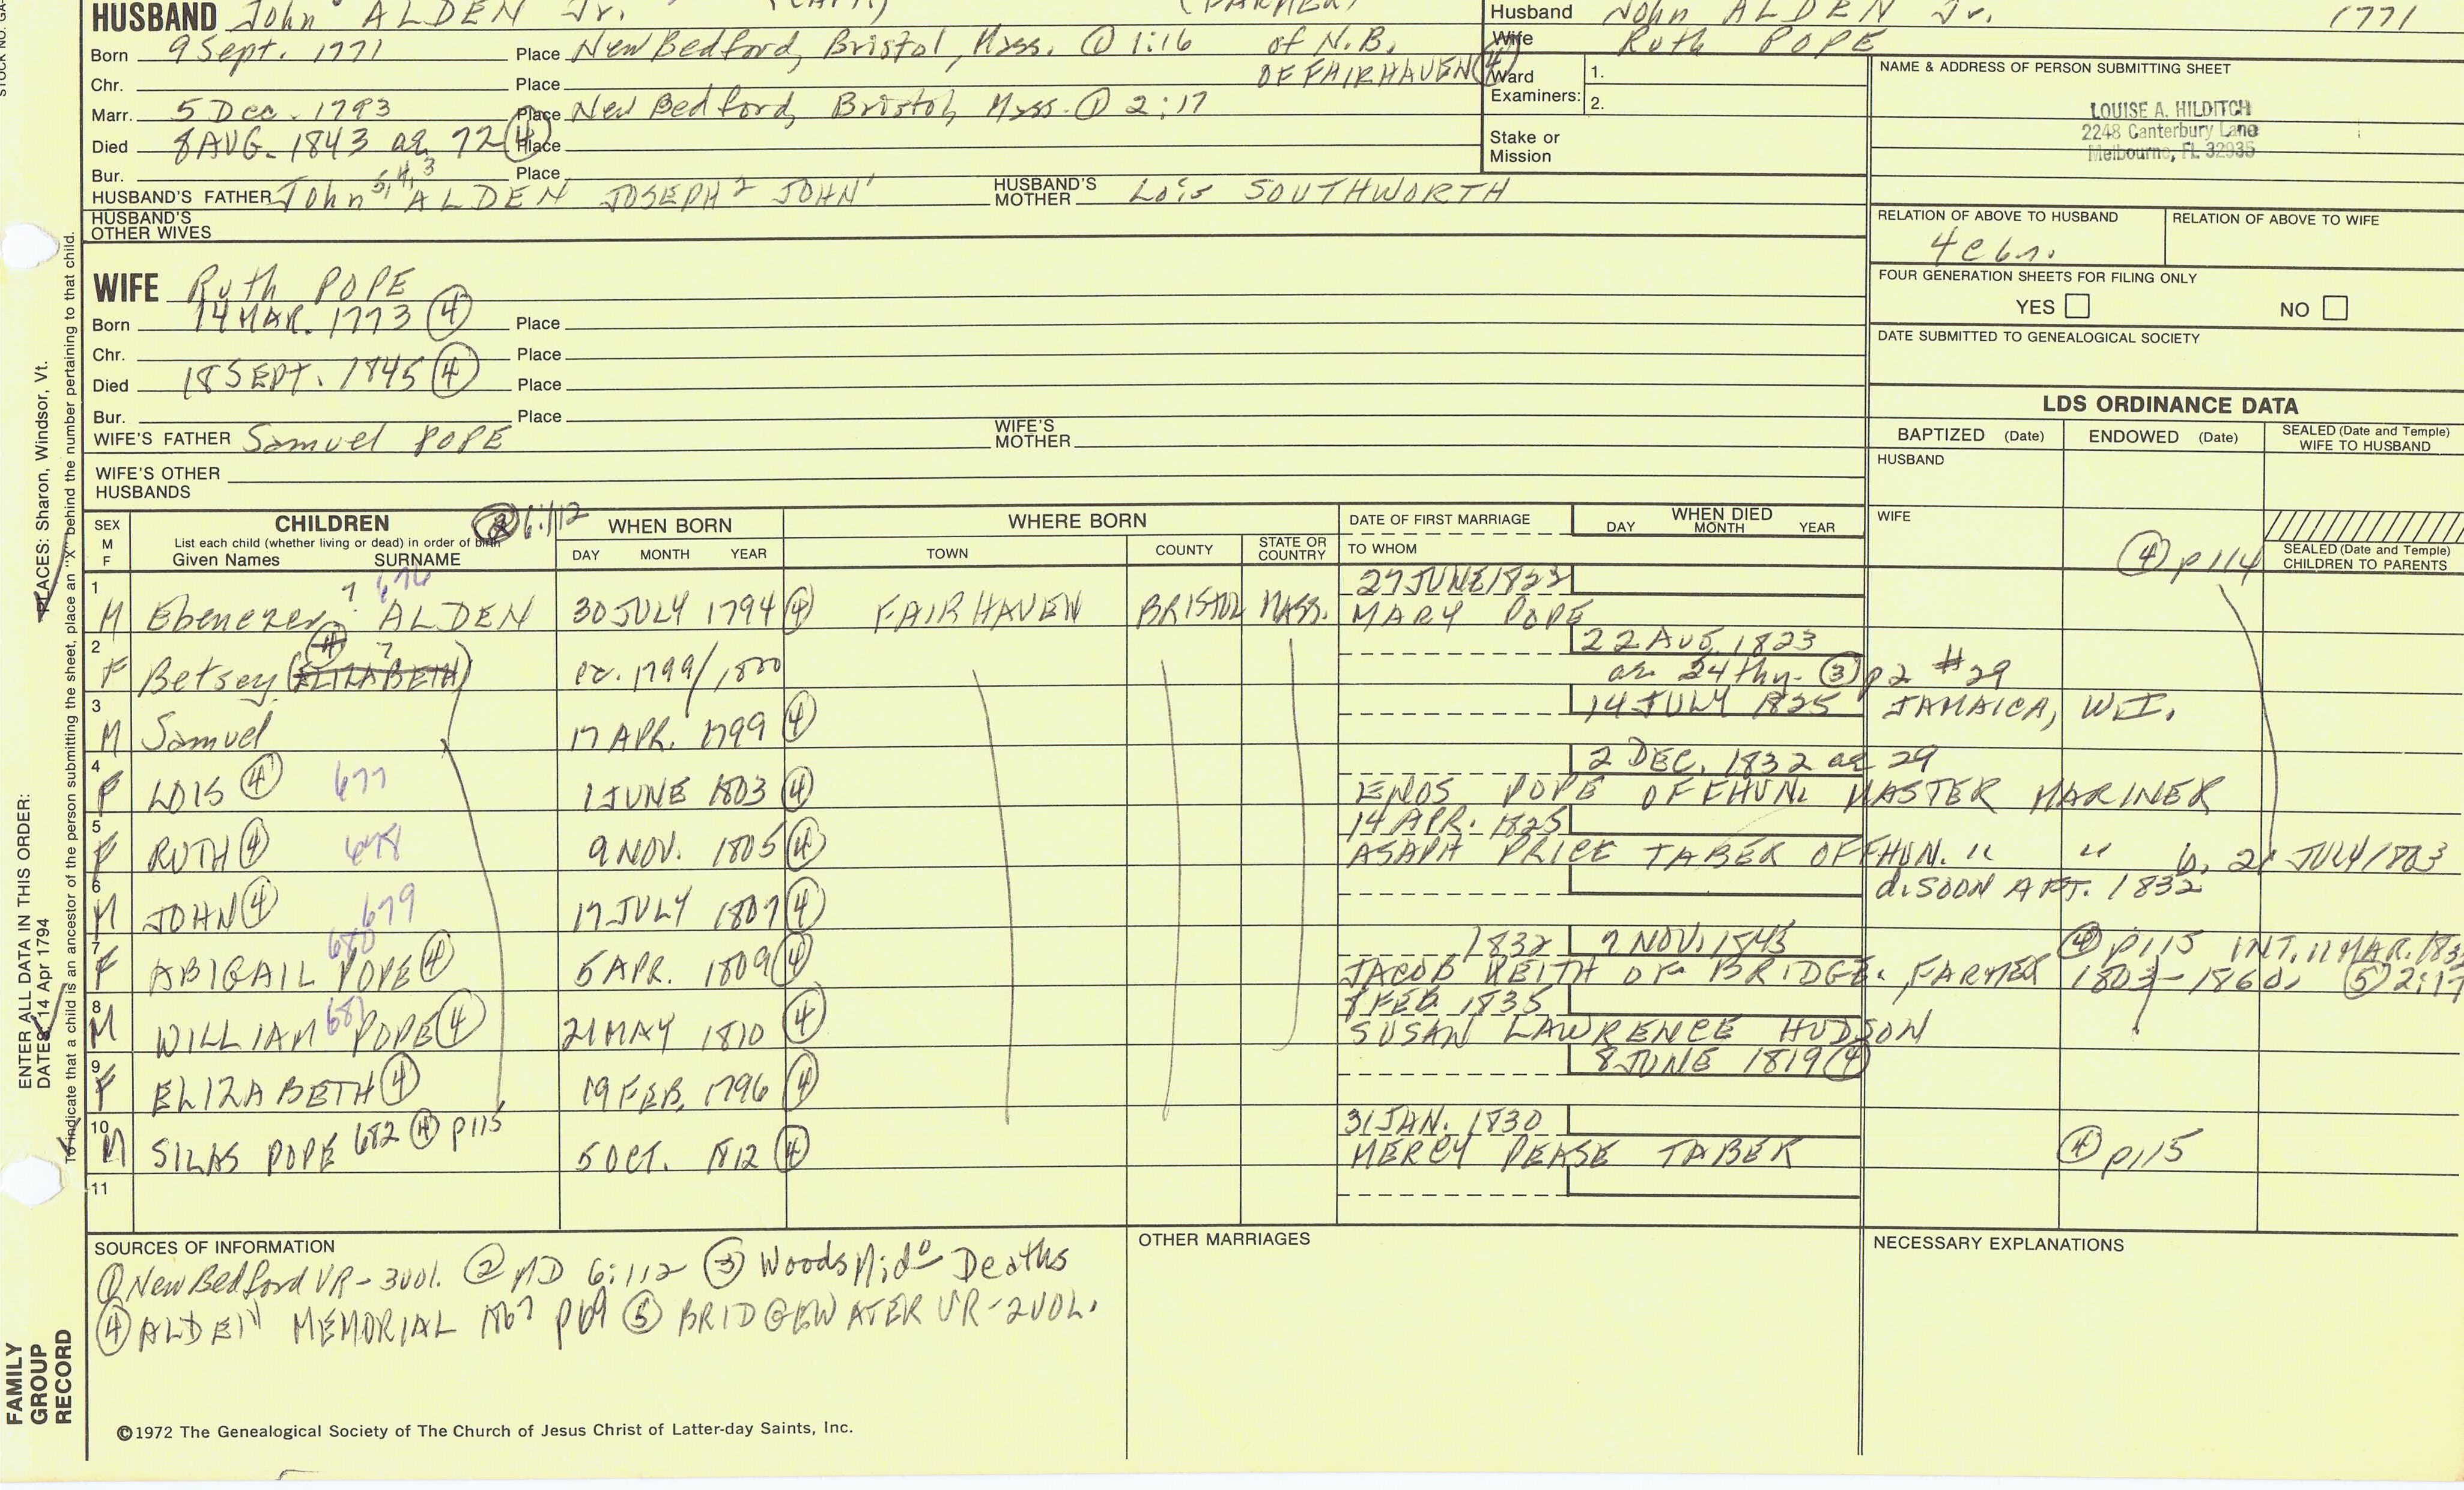 HUSBAND John ALDEN Jr.
Husband John ALDEN Jr. 1771
Wife Ruth POPE
Born 9 Sept. 1771 Place New Bedford, Bristol, Mass. ① 1:16 of N.B.
OF FAIRHAVEN ④
Chr. Place
Marr. 5 Dec. 1793 Place New Bedford, Bristol, Mass. ① 2:17
Died 8 AUG. 1843 ae 72 ④ Place
Bur. Place
Ward Examiners: 1.
2.
Stake or Mission
HUSBAND'S FATHER John 5,4,3 ALDEN JOSEPH 2 JOHN 1 HUSBAND'S MOTHER Lois SOUTHWORTH
HUSBAND'S OTHER WIVES
NAME & ADDRESS OF PERSON SUBMITTING SHEET
LOUISE A. HILDITCH
2248 Canterbury Lane
Melbourne, FL 32935
RELATION OF ABOVE TO HUSBAND
RELATION OF ABOVE TO WIFE
FOUR GENERATION SHEETS FOR FILING ONLY
YES NO
DATE SUBMITTED TO GENEALOGICAL SOCIETY
WIFE Ruth POPE
Born 14 MAR. 1773 ④ Place
Chr. Place
Died 18 SEPT. 1845 ④ Place
Bur. Place
WIFE'S FATHER Samuel POPE WIFE'S MOTHER
WIFE'S OTHER HUSBANDS
LDS ORDINANCE DATA
BAPTIZED (Date) ENDOWED (Date) SEALED (Date and Temple) WIFE TO HUSBAND
HUSBAND
WIFE
SEALED (Date and Temple) CHILDREN TO PARENTS
④ p114
SEX M F
CHILDREN 6:112
List each child (whether living or dead) in order of birth
Given Names SURNAME
WHEN BORN
DAY MONTH YEAR
WHERE BORN
TOWN COUNTY STATE OR COUNTRY
DATE OF FIRST MARRIAGE
TO WHOM
WHEN DIED
DAY MONTH YEAR
1 M Ebenezer 7 ALDEN 676 30 JULY 1794 ④ FAIRHAVEN BRISTOL MASS. 27 JUNE 1823
MARY POPE
2 F Betsey 7 (ELIZABETH) ④ ca. 1799/1800 22 AUG. 1823
ae 24 thy. ③ p2 #29
3 M Samuel 17 APR. 1799 ④ 14 JULY 1825 JAMAICA, W.I.
4 F LOIS ④ 677 1 JUNE 1803 ④ 2 DEC. 1832 ae 29
ENOS POPE OF FHVN. MASTER MARINER
5 F RUTH ④ 678 9 NOV. 1805 ④ 14 APR. 1825
ASAPH PRICE TABER OF FHVN. " " b. 21 JULY 1803
6 M JOHN ④ 679 17 JULY 1807 ④ d. SOON AFT. 1832
7 F ABIGAIL POPE ④ 680 5 APR. 1809 ④ 1832 9 NOV. 1843 ④ p115 INT. 11 MAR.
JACOB KEITH OF BRIDGE., FARMER 1803-1860. ⑤ 2:17
8 M WILLIAM POPE ④ 681 21 MAY 1810 ④ FEB. 1835
SUSAN LAWRENCE HUDSON
9 F ELIZABETH ④ 19 FEB. 1796 ④ 8 JUNE 1819 ④
10 M SILAS POPE 682 ④ p115 5 OCT. 1812 ④ 31 JAN. 1830
MERCY PEASE TABER ④ p115
11
SOURCES OF INFORMATION
① New Bedford VR - 3 vol. ② MD 6:112 ③ Woods Mido Deaths
④ ALDEN MEMORIAL 1867 p69 ⑤ BRIDGEWATER VR - 2 VOL.
OTHER MARRIAGES
NECESSARY EXPLANATIONS
©1972 The Genealogical Society of The Church of Jesus Christ of Latter-day Saints, Inc.
FAMILY GROUP RECORD
ENTER ALL DATA IN THIS ORDER:
DATES: 14 Apr 1794
PLACES: Sharon, Windsor, Vt.
To indicate that a child is an ancestor of the person submitting the sheet, place an "X" behind the number pertaining to that child.